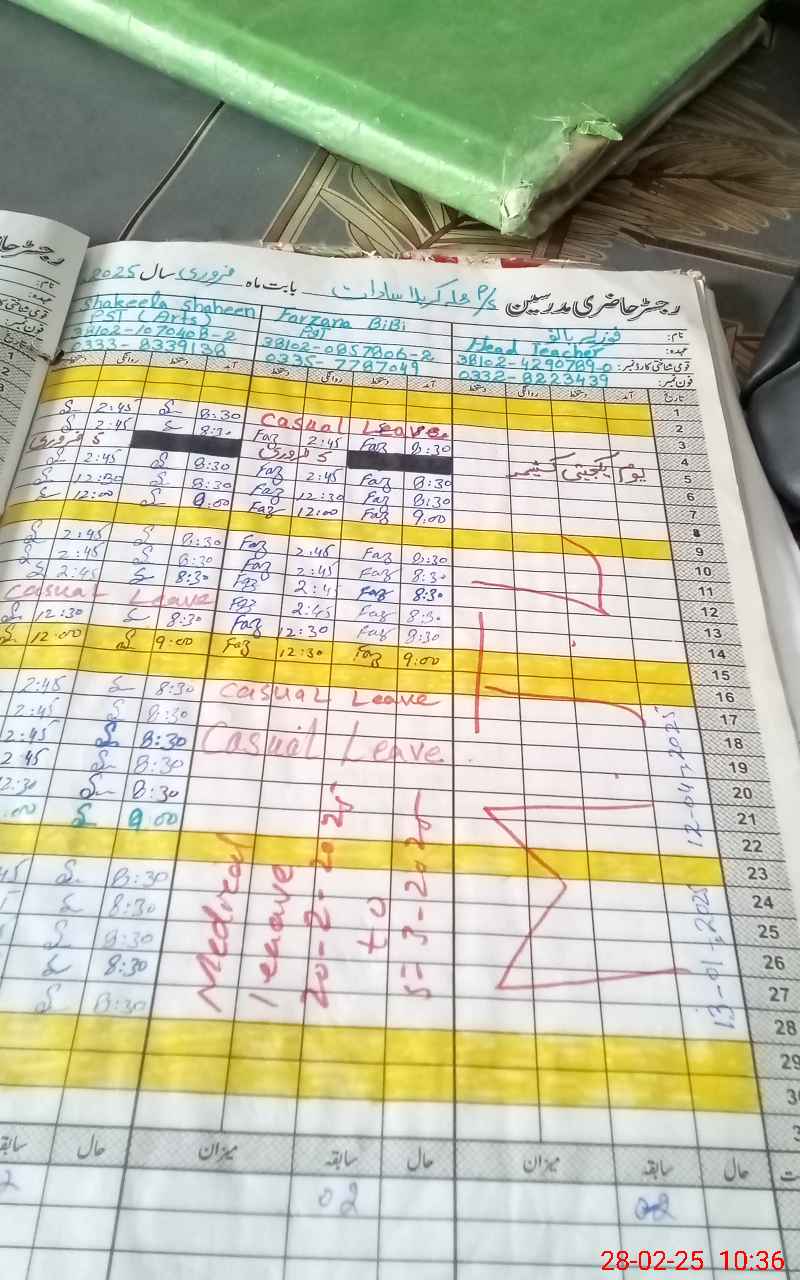 رجسٹر حاضری مدرسین P/S بابت ماہ فروری سال 2025
نام: Farzana BiBi Shakeela Shaheen
عہدہ: Head Teacher PST PST (Arts)
قومی شناختی کارڈ نمبر: 38102-4290789-0 38102-0857806-2 38102-1070408-2
فون نمبر: 0332-8223439 0335-7787049 0333-8339138
تاریخ آمد دستخط روانگی دستخط آمد دستخط روانگی دستخط آمد دستخط روانگی دستخط
1
2
3 Casual Leave 8:30 2:45
4 8:30 Faz 2:45 Faz 8:30 2:45
5 یوم یکجہتی کشمیر 5 فروری 5 فروری
6 8:30 Faz 2:45 Faz 8:30 2:45
7 8:30 Faz 12:30 Faz 8:30 12:30
8 9:00 Faz 12:00 Faz 9:00 12:00
9
10 8:30 Faz 2:45 Faz 8:30 2:45
11 8:30 Faz 2:45 Faz 8:30 2:45
12 8:30 Faz 2:45 Faz 8:30 2:45
13 8:30 Faz 2:45 Faz Casual Leave
14 8:30 Faz 12:30 Faz 8:30 12:30
15 9:00 Faz 12:30 Faz 9:00 12:00
16
17 Casual Leave 8:30 2:45
18 Casual Leave 8:30 2:45
19 8:30 2:45
20 8:30 2:45
21 8:30 12:30
22 9:00
23
24 8:30
25 8:30
26 8:30
27 8:30
28 8:30
29
30
Medical
leave
20-2-2025
to
5-3-2025
12-04-2025
13-01-2025
حال سابقہ میزان حال سابقہ میزان حال
02 02
28-02-25 10:36